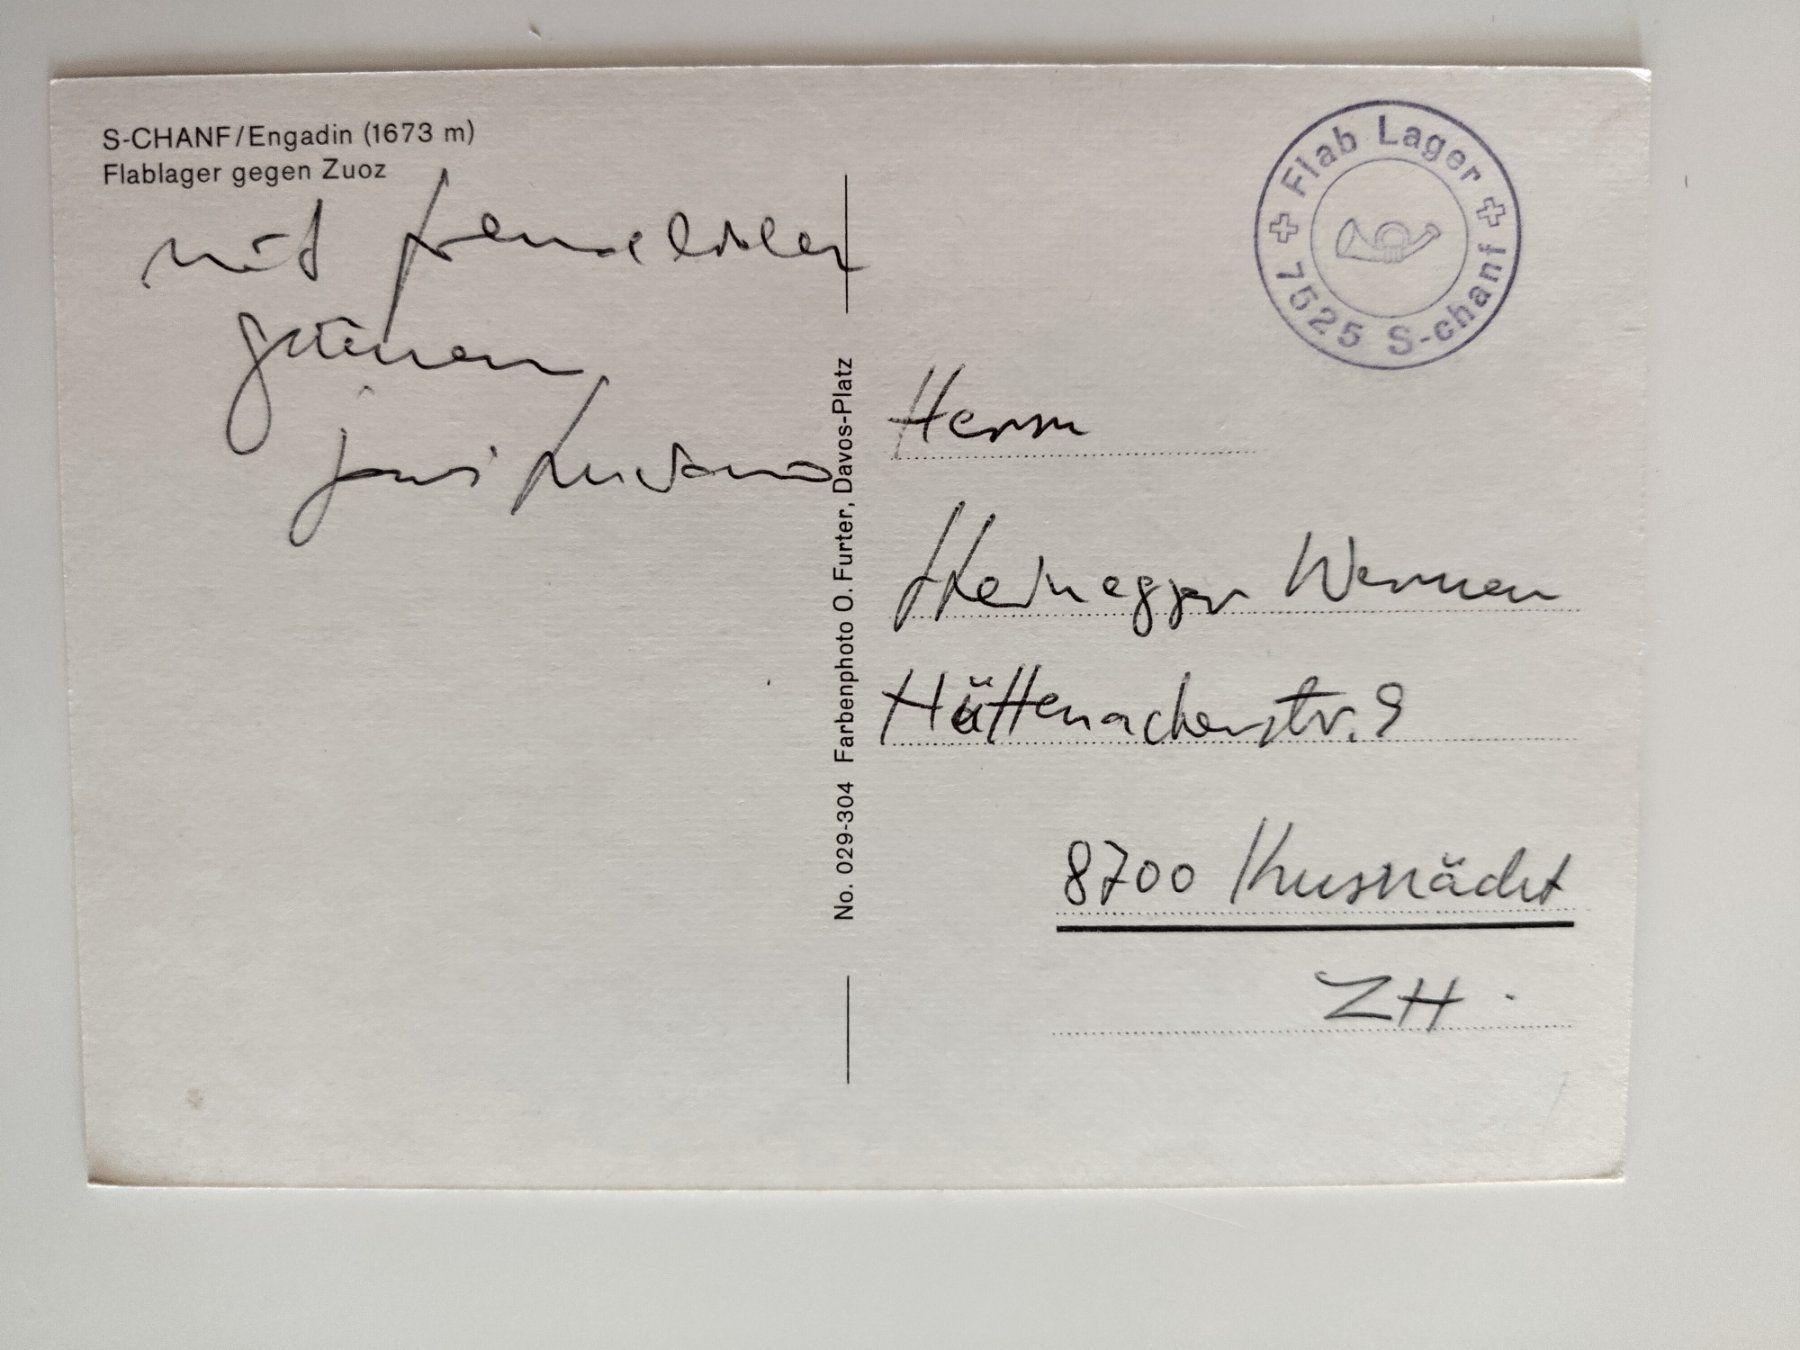 S-CHANF/Engadin (1673 m)
Flablager gegen Zuoz
mit freundlichen
grüssen
Flab Lager
7525 S-chanf
No. 029-304 Farbenphoto O. Furter, Davos-Platz
Herrn
Steinegger Werner
Hüttenackerstr. 9
8700 Kusnächt
ZH